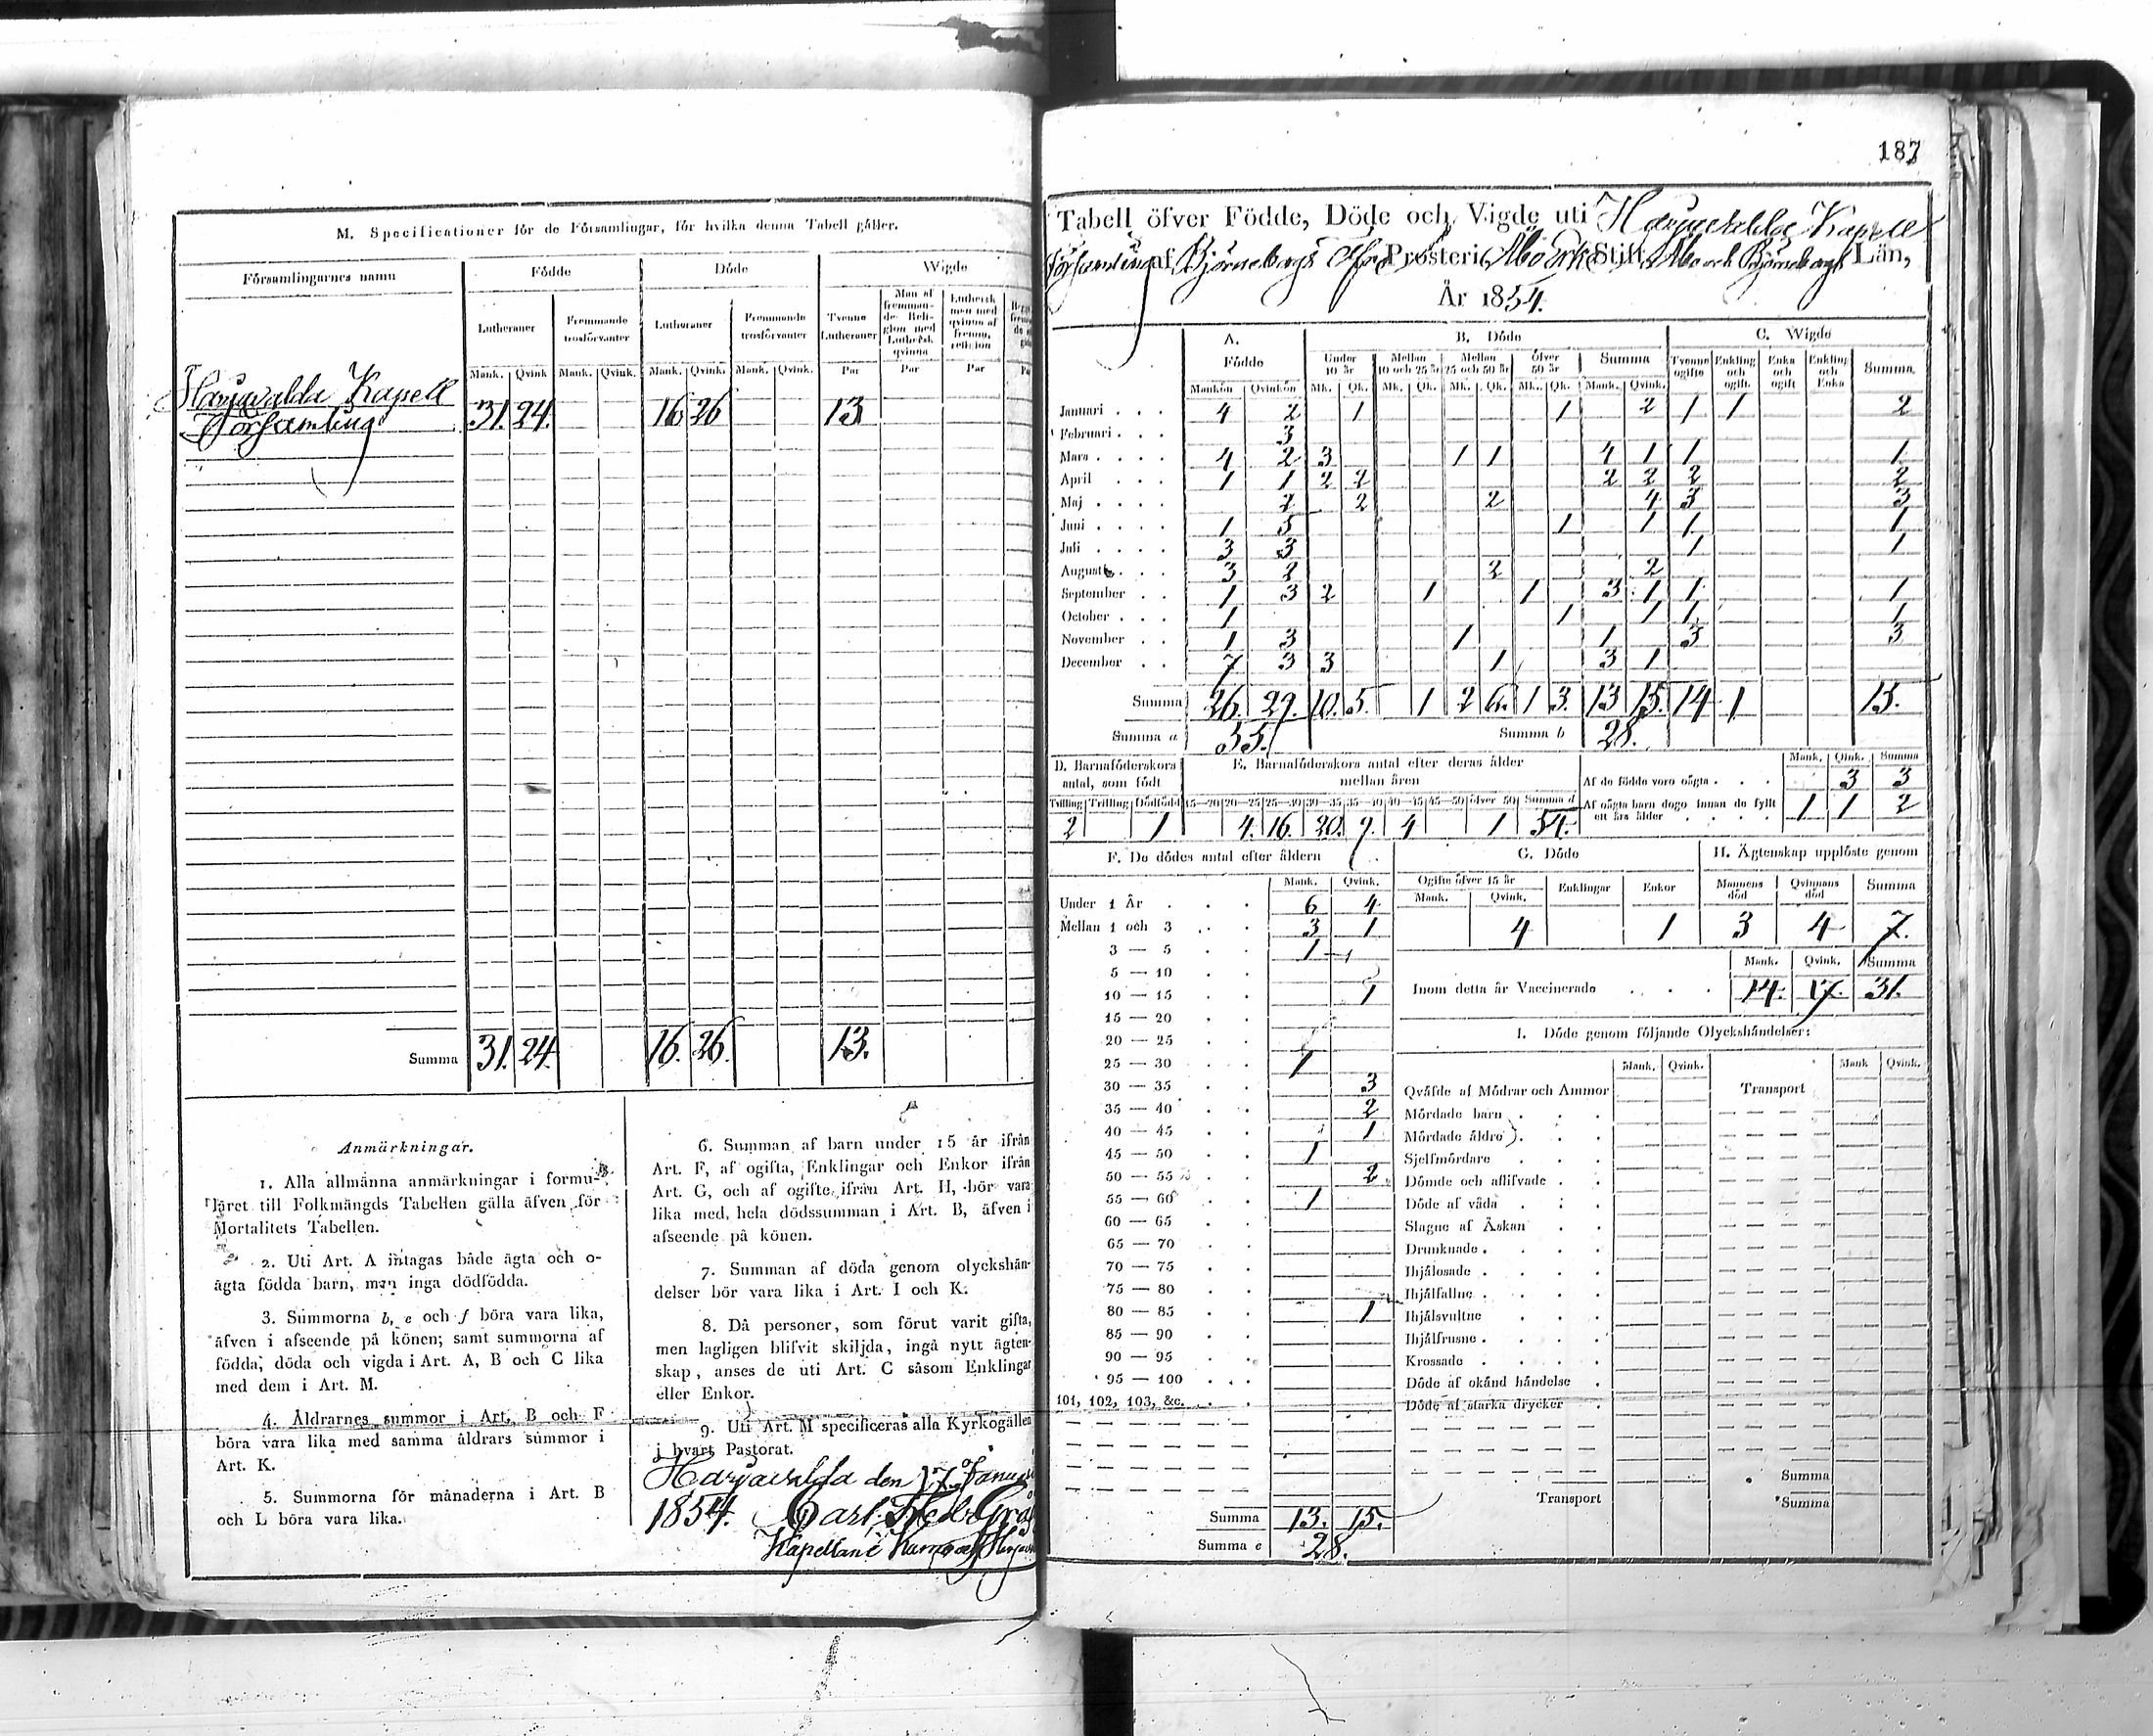 M. Specificationer för de Församlingar, för hvilka denna Tabell gäller.
Församlingarnes namn Födde Döde Wigde
Lutheraner Fremmande trosförvanter Lutheraner Fremmande trosförvanter Tvenne Lutheraner Man af fremmande Religion med Luthersk qvinna Luthersk man med qvinna af fremm. religion
Mank. Qvink. Mank. Qvink. Mank. Qvink. Mank. Qvink. Par Par Par
Harjavalda Kapell
Församling 31. 24. 16 26 13
Summa 31. 24. 16. 26. 13.
Anmärkningar.
1. Alla allmänna anmärkningar i formu-
läret till Folkmängds Tabellen gälla äfven för
Mortalitets Tabellen.
2. Uti Art. A intagas både ägta och o-
ägta födda barn, men inga dödfödda.
3. Summorna b, e och f böra vara lika,
äfven i afseende på könen; samt summorna af
födda, döda och vigda i Art. A, B och C lika
med dem i Art. M.
4. Åldrarnes summor i Art. B och F
böra vara lika med samma åldrars summor i
Art. K.
5. Summorna för månaderna i Art. B
och L böra vara lika.
6. Summan af barn under 15 år ifrån
Art. F, af ogifta, Enklingar och Enkor ifrån
Art. G, och af ogifte ifrån Art. H, bör vara
lika med hela dödssumman i Art. B, äfven i
afseende på könen.
7. Summan af döda genom olyckshän-
delser bör vara lika i Art. I och K.
8. Då personer, som förut varit gifta,
men lagligen blifvit skiljda, ingå nytt ägten-
skap, anses de uti Art. C såsom Enklingar
eller Enkor.
9. Uti Art. M specificeras alla Kyrkogällen
i hvart Pastorat.
Harjavalda den 17. Janua
1854. Carl Fredr. Grå
Kapellan i
187
Tabell öfver Födde, Döde och Vigde uti Harjavalda Kapell
Församling af Björneborgs Prosteri, Åbo Erke Stift, Åbo och Björneborgs Län,
År 1854.
A. Födde B. Döde C. Wigde
Under 10 år Mellan 10 och 25 år Mellan 25 och 50 år öfver 50 år Summa Tvenne ogifte Enkling och ogift Enka och ogift Enkling och Enka Summa
Mankön Qvinkön Mk. Qk. Mk. Qk. Mk. Qk. Mk. Qk. Mank. Qvink.
Januari 4 2 1 1 2 1 1 2
Februari 3
Mars 4 2 3 1 1 4 1 1 1
April 1 1 2 2 2 2 2 2
Maj 2 2 2 4 3 3
Juni 1 5 1 1 1 1
Juli 3 3 1 1
Augusti 3 2 2 2
September 1 3 2 1 1 3 1 1 1
October 1 1 1 1 1
November 1 3 1 1 3 3
December 7 3 3 1 3 1
Summa 26. 29. 10. 5. 1 2 6. 1 3. 13 15. 14 1 15.
Summa a 55. Summa b 28.
D. Barnaföderskors antal, som födt
Tvilling Trilling Dödfödd
2 1
E. Barnaföderskors antal efter deras ålder mellan åren
15—20 20—25 25—30 30—35 35—40 40—45 45—50 öfver 50 Summa d
4. 16. 20. 9. 4 1 54.
Mank. Qink. Summa
Af de födde voro oägta 3 3
Af oägta barn dogo innan de fyllt ett års ålder 1 1 2
F. De dödes antal efter åldern
Mank. Qvink.
Under 1 År 6 4
Mellan 1 och 3 3 1
3 — 5 1
5 — 10
10 — 15 1
15 — 20
20 — 25
25 — 30 1
30 — 35 3
35 — 40 2
40 — 45 1
45 — 50 1
50 — 55 2
55 — 60 1
60 — 65
65 — 70
70 — 75
75 — 80
80 — 85 1
85 — 90
90 — 95
95 — 100
101, 102, 103, &c.
Summa 13. 15.
Summa e 28.
G. Döde
Ogifte öfver 15 år Enklingar Enkor
Mank. Qvink.
4 1
H. Ägtenskap upplöste genom
Mannens död Qvinnans död Summa
3 4 7.
Mank. Qvink. Summa
Inom detta år Vaccinerade 14. 17. 31.
I. Döde genom följande Olyckshändelser:
Mank. Qvink. Mank Qvink.
Qväfde af Mödrar och Ammor Transport
Mördade barn
Mördade äldre
Sjelfmördare
Dömde och aflifvade
Döde af våda
Slagne af Åskan
Drunknade
Ihjälosade
Ihjälfallne
Ihjälsvultne
Ihjälfrusne
Krossade
Döde af okänd händelse
Döde af starka drycker
Summa
Transport Summa